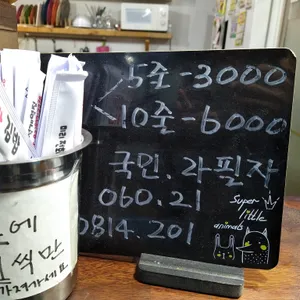 5줄-3000
10줄-6000
국민. 라필자
060.21
0814.201
Super
little
animals
에
씩만
가져가세요